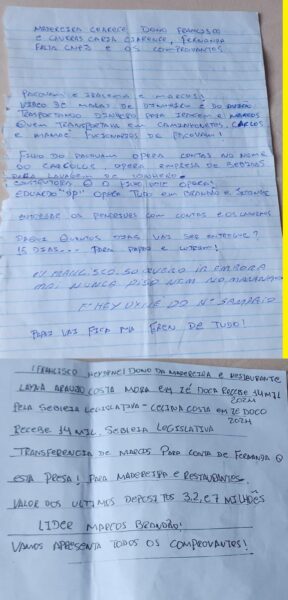 MADEREIRA CHARERE DONO FRANCISCO
E FERNANDA
CNPJ E OS COMPROVANTES
PACOVAM E IRACEMA E MARCUS!
VIDEO DE MALAS DE DINHEIRO E DO
TRASPORTANDO DINHEIRO PARA IRACEMA E MARCOS
QUEM TRANSPORTAVA EM CAMINHONETES, CARLOS
E MANOE FUCIONARIOS DE PACOVAM!
FILHO DO PACOVAM OPERA CONTAS NO NOME
DO OPERA EMPRESA DE BEBIDAS
PARA LAVAGEM DE DINHEIRO.
CONSTRUTORA O FILHO DELE OPERA!
EDUARDO "DP" OPERA TUDO EM BRANDÃO E
ENTREGAR OS PENDRIVES COM CONTAS E OS LARANJAS
DAQUI QUANTOS DIAS VAI SER ENTREGUE?
15 DIAS... PARA PAPAI E
FRANCISCO SO QUERO IR EMBORA
MAI NUNCA PISO NEM NO MARANHÃO
PAPAI VAI FICA NA FREN DE TUDO!
! FRANCISCO DONO DA MADEREIRA E RESTAURANTE
ARAUJO COSTA MORA EM ZÉ DOCA RECEBE 14 MIL
2024
PELA SEBLEIA LEGISLATIVA - COSTA EM ZE DOCO
2024
RECEBE 14 MIL. SEBLEIA LEGISLATIVA
TRANSFERENCIA DE MARCUS PARA CONTA DE FERNANDA Q
ESTA PRESA! PARA MADEREIRA E RESTAURANTES.
VALOR DOS ULTIMOS DEPOSITOS 3.2, E 7 MILHOÊS
LIDER MARCOS BRANDÃO!
VAMOS APRESENTA TODOS OS COMPROVANTES!